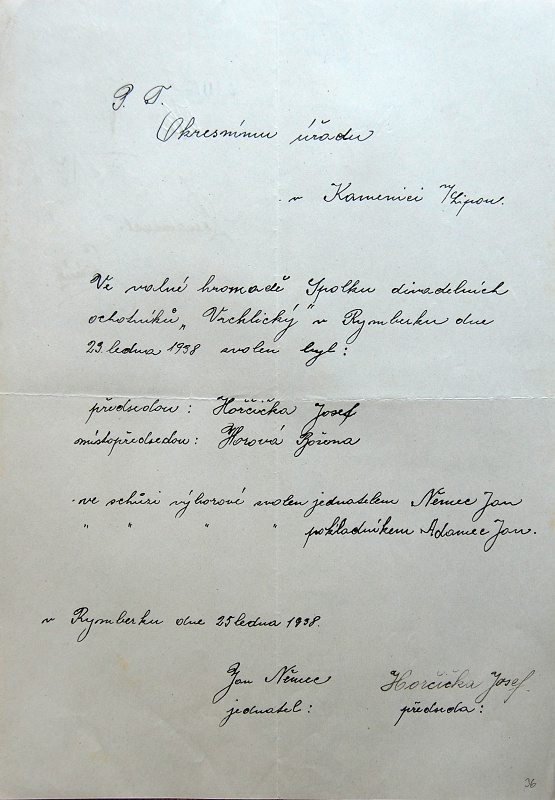 P. T.
Okresnímu úřadu
v Kamenici n/Lipou.
Ve valné hromadě Spolku divadelních
ochotníků „Vrchlický" v Rymberku dne
23. ledna 1938 zvolen byl:
předsedou: Horčička Josef
místopředsedou: Horová Božena
ve schůzi výborové zvolen jednatelem Němec Jan
" " " " pokladníkem Adamec Jan.
v Rymberku dne 25 ledna 1938.
Jan Němec Horčička Josef.
jednatel: předseda:
36